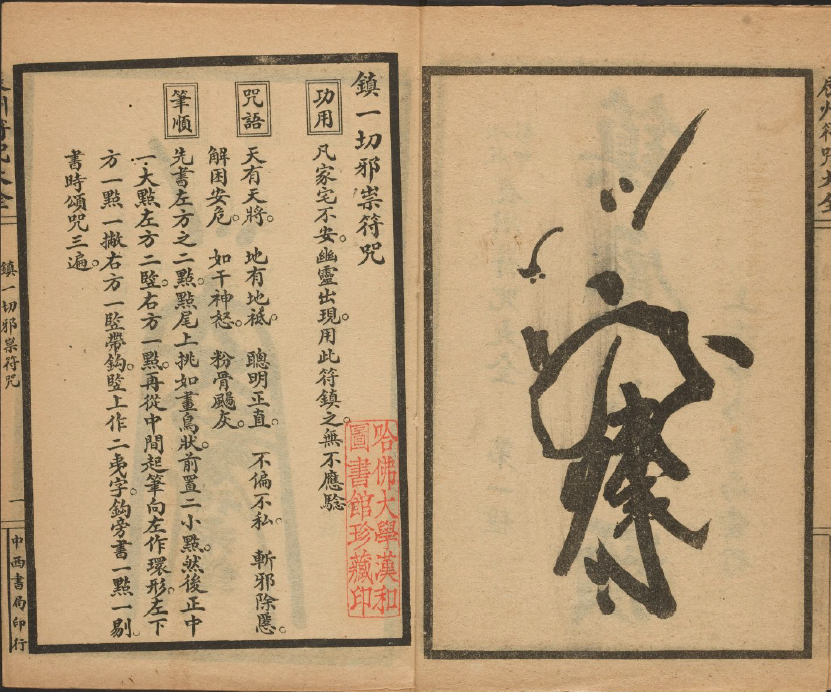 鎮一切邪祟符咒
功用
凡家宅不安。幽靈出現。用此符鎮之。無不應驗
咒語
天有天將。地有地祗。聰明正直。不偏不私。斬邪除慝。
解困安危。如干神怒。粉骨颺灰。
筆順
先書左方之二點。點尾上挑。如畫鳥狀。前置二小點。然後正中
一大點。左方二竪。右方一點。再從中間起筆。向左作環形。左下
方一點一撇。右方一竪帶鈎。竪上作二夷字。鈎旁書一點一剔。
書時頌咒三遍。
哈佛大學漢和
圖書館珍藏印
鎮一切邪祟符咒
一
中西書局印行
州符咒大全